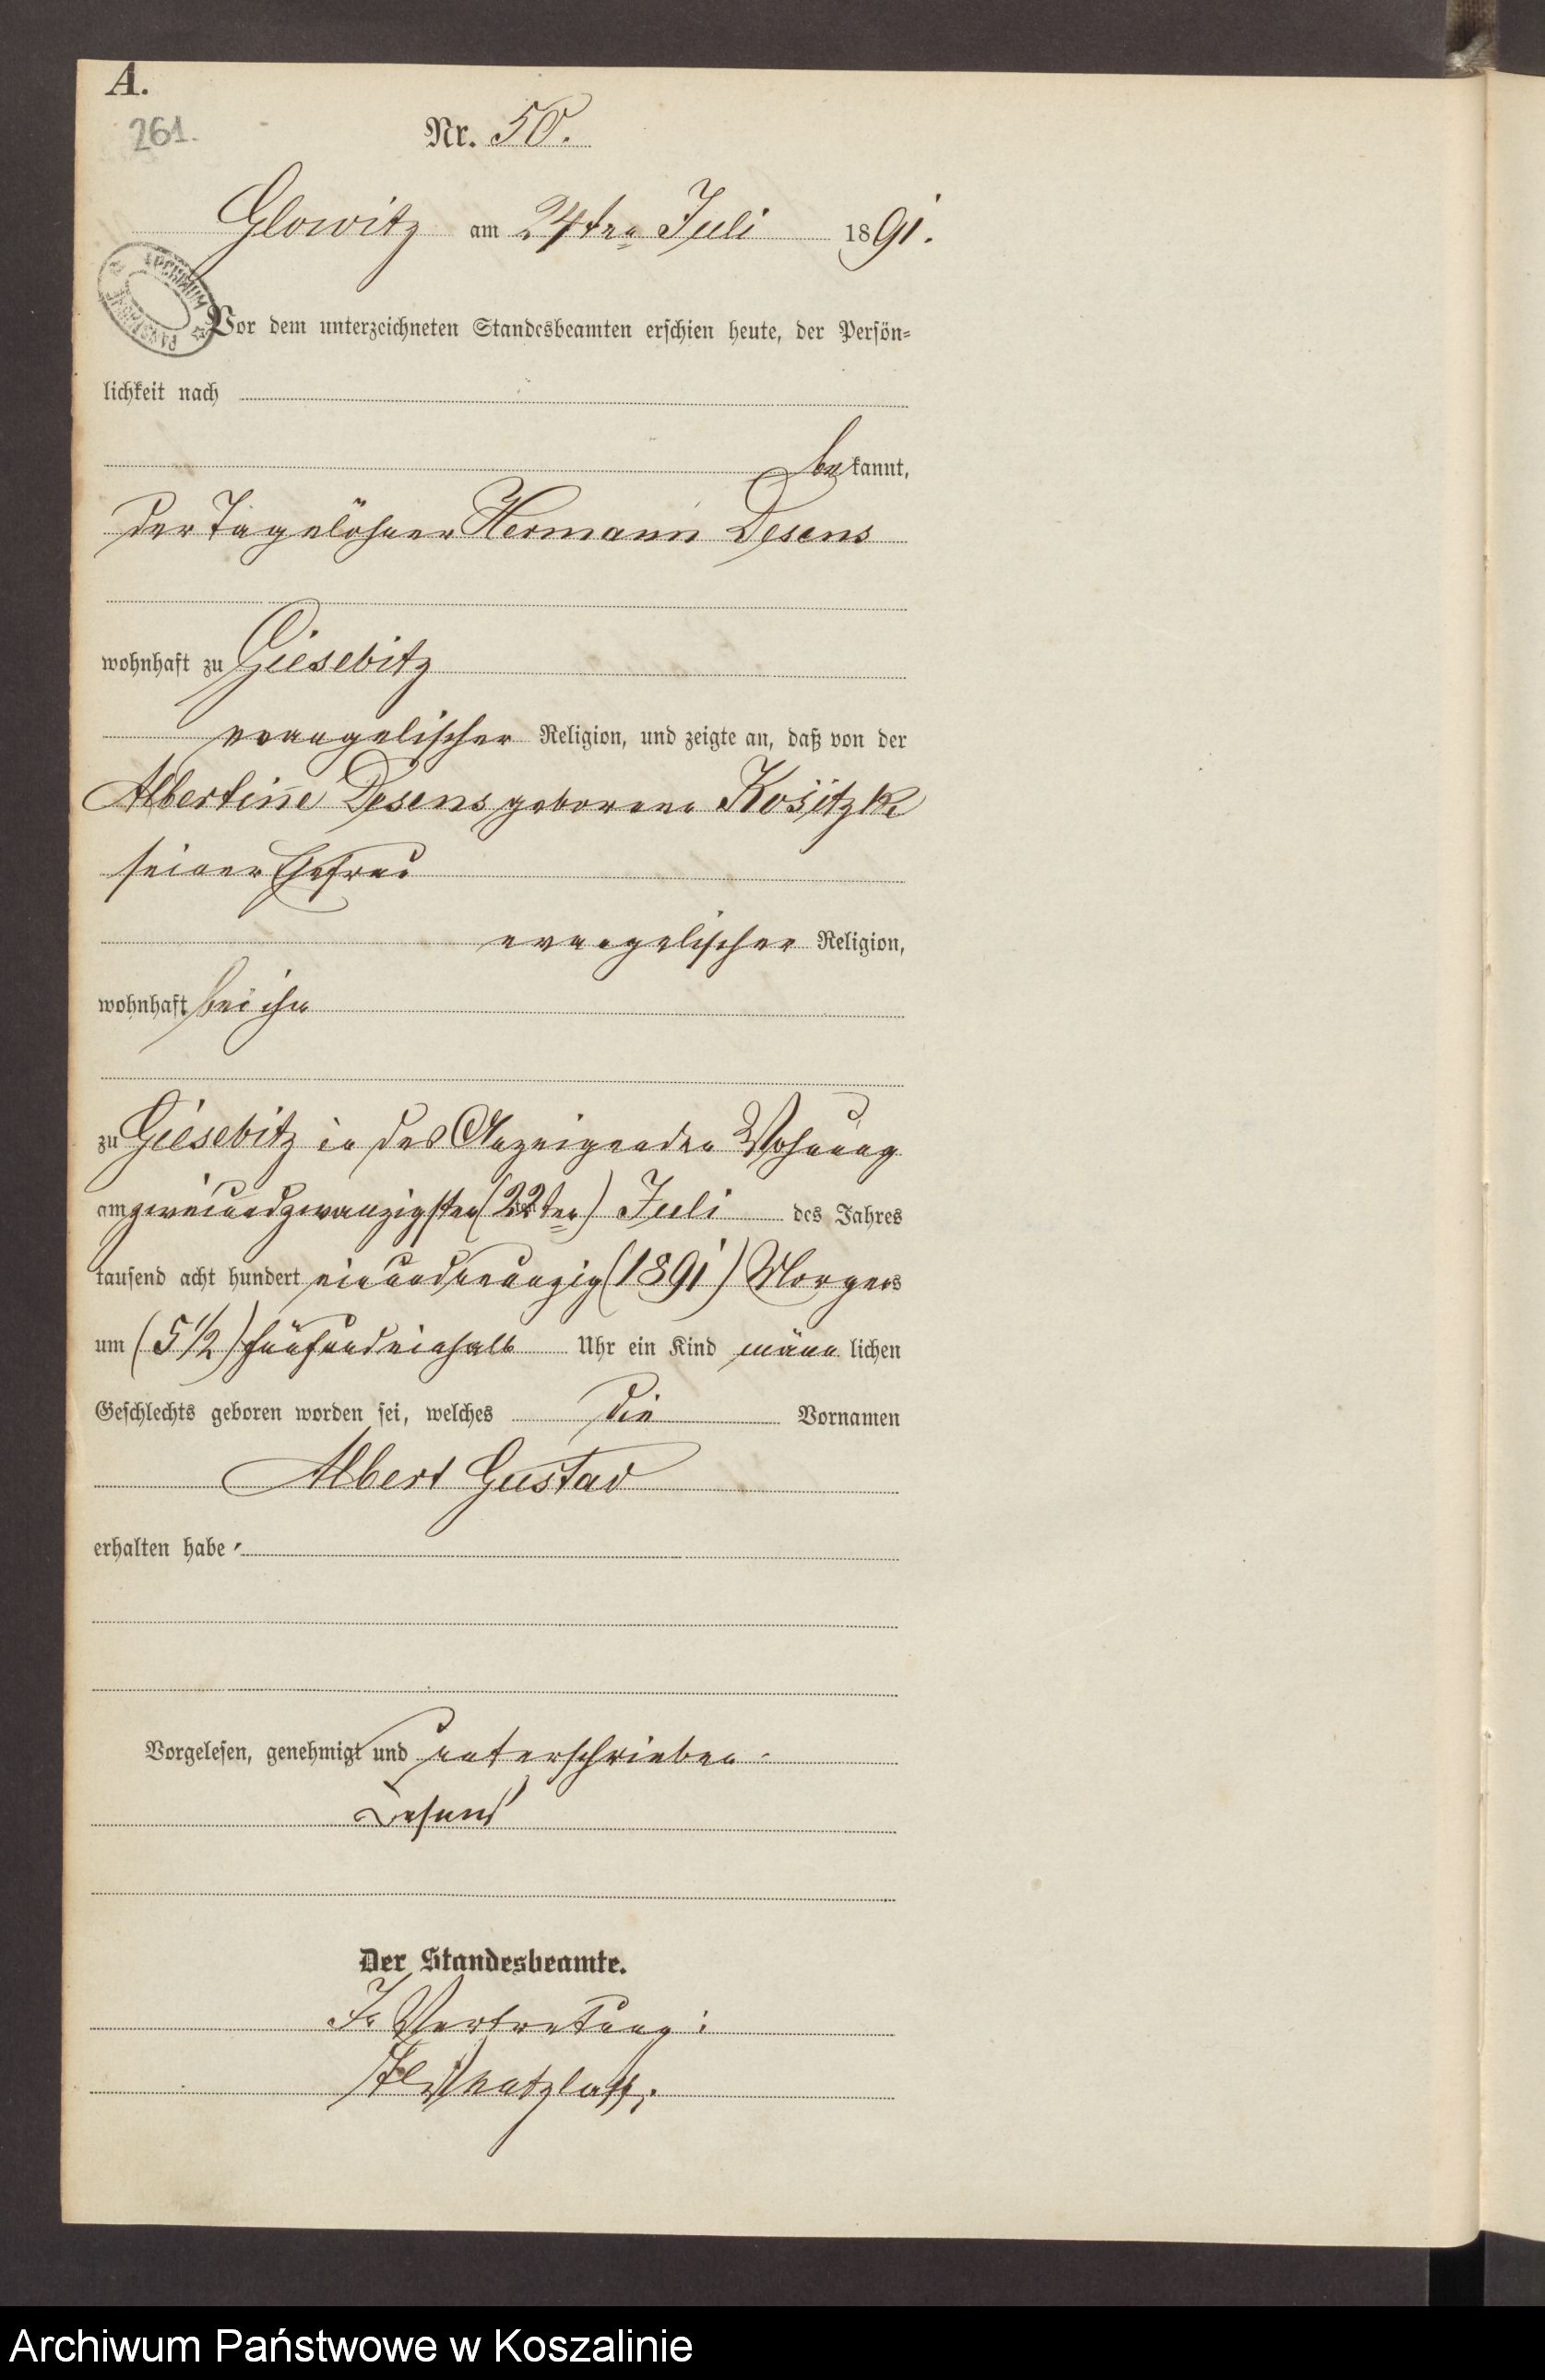 A.
261.
Nr. 50.
Glowitz am 24ten Juli 1891.
Vor dem unterzeichneten Standesbeamten erschien heute, der Persön=
lichkeit nach
bekannt,
der Tagelöhner Hermann Desens
wohnhaft zu Giesebitz
evangelischer Religion, und zeigte an, daß von der
Albertine Desens geborene Kositzke
seiner Ehefrau
evangelischer Religion,
wohnhaft bei ihm
zu Giesebitz in des Anzeigenden Wohnung
am zweiundzwanzigsten (22ten) Juli des Jahres
tausend acht hundert einundneunzig (1891) Morgens
um (5 1/2) fünfundeinhalb Uhr ein Kind männlichen
Geschlechts geboren worden sei, welches die Vornamen
Albert Gustav
erhalten habe.
Vorgelesen, genehmigt und unterschrieben.
Desens
Der Standesbeamte.
In Vertretung:
Archiwum Państwowe w Koszalinie